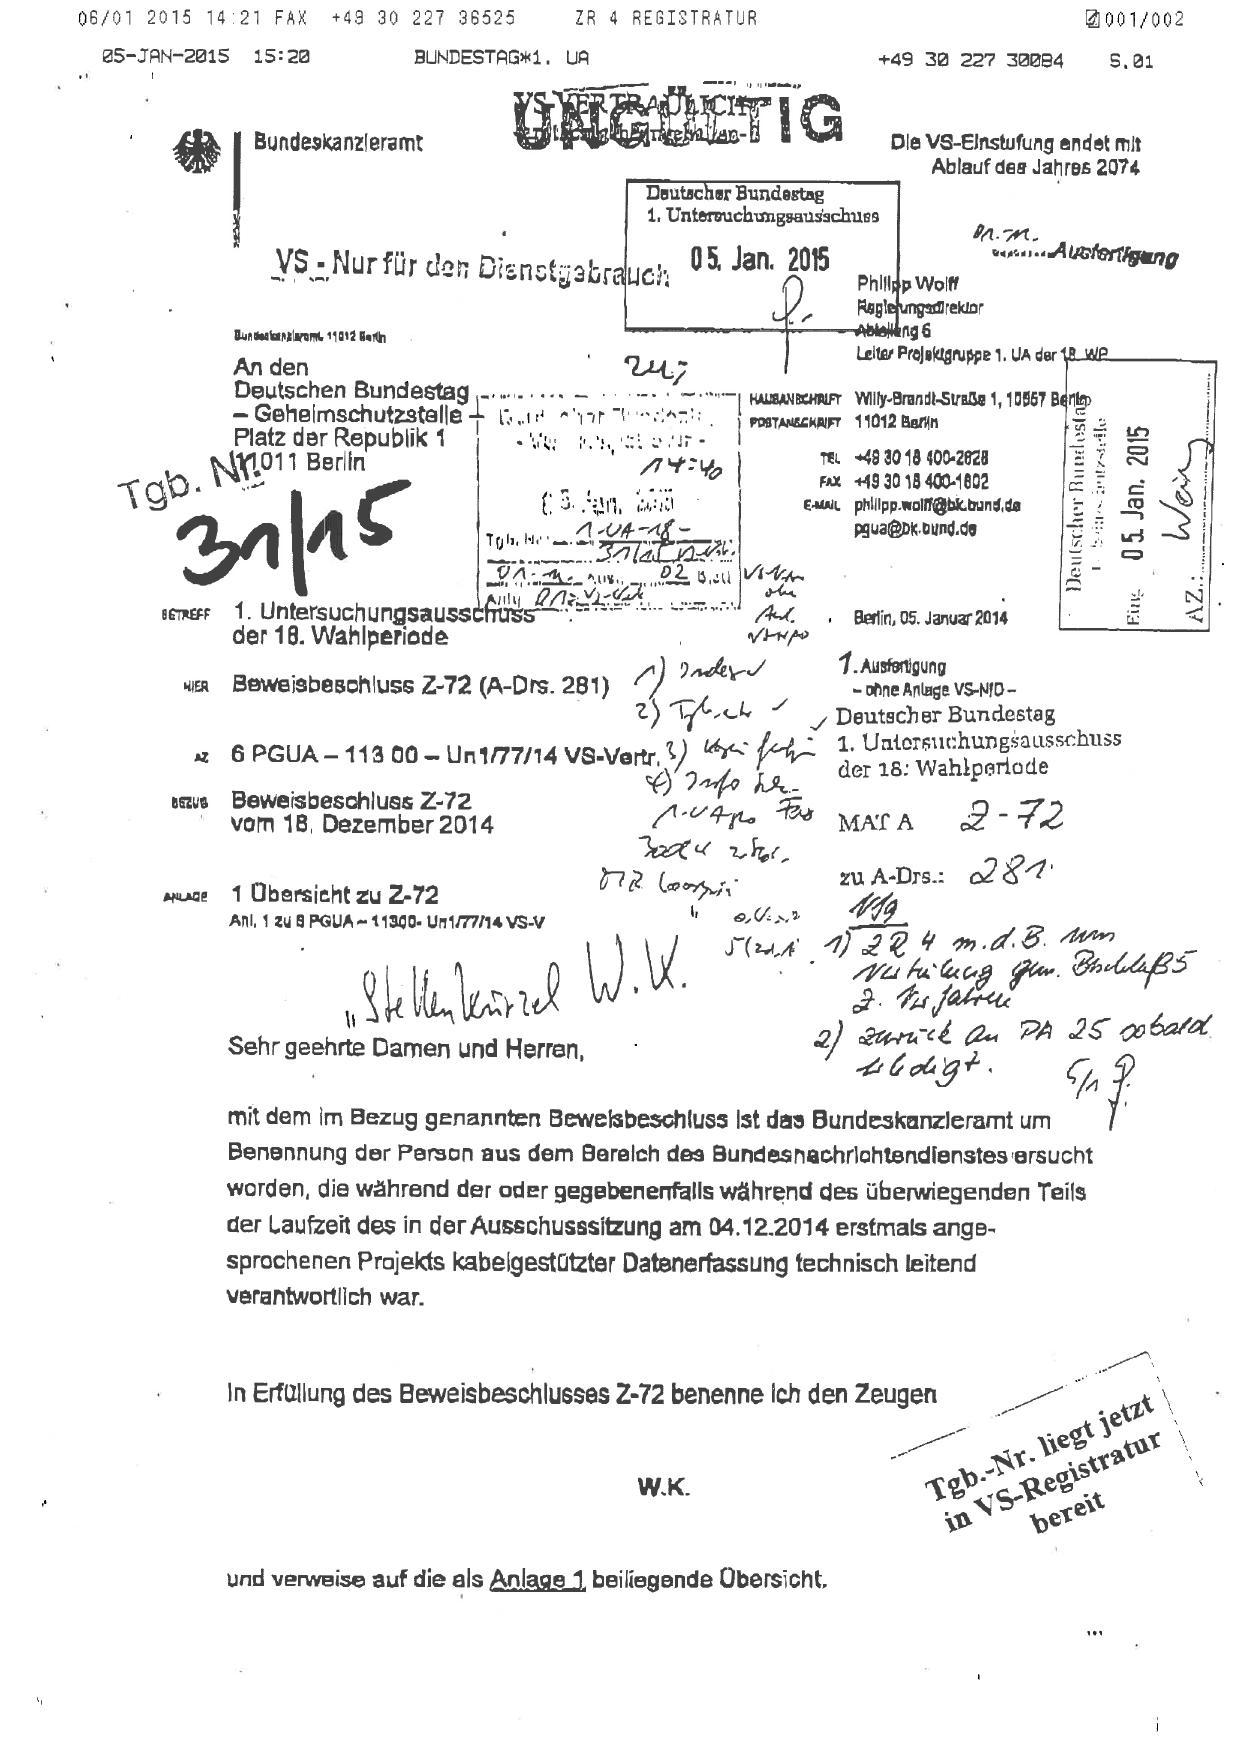 06/01 2015 14:21 FAX +49 30 227 36525 ZR 4 REGISTRATUR 001/002
05-JAN-2015 15:20 BUNDESTAG*1. UA +49 30 227 30084 S.01
VS-VERTRAULICH
UNGÜLTIG
Bundeskanzleramt
Die VS-Einstufung endet mit
Ablauf des Jahres 2074
Deutscher Bundestag
1. Untersuchungsausschuss
05. Jan. 2015
Ausfertigung
VS - Nur für den Dienstgebrauch
Philipp Wolff
Regierungsdirektor
Abteilung 6
Leiter Projektgruppe 1. UA der 18. WP
Bundeskanzleramt, 11012 Berlin
An den
Deutschen Bundestag
– Geheimschutzstelle –
Platz der Republik 1
11011 Berlin
HAUSANSCHRIFT Willy-Brandt-Straße 1, 10557 Berlin
POSTANSCHRIFT 11012 Berlin
TEL +49 30 18 400-2628
FAX +49 30 18 400-1802
E-MAIL philipp.wolff@bk.bund.de
pgua@bk.bund.de
Tgb. Nr.
31/15
14:40
1-UA-18-
Deutscher Bundestag
Eing. 05. Jan. 2015
AZ.:
BETREFF 1. Untersuchungsausschuss
der 18. Wahlperiode
Berlin, 05. Januar 2014
HIER Beweisbeschluss Z-72 (A-Drs. 281)
1. Ausfertigung
– ohne Anlage VS-NfD –
Deutscher Bundestag
1. Untersuchungsausschuss
der 18. Wahlperiode
AZ 6 PGUA – 113 00 – Un1/77/14 VS-Vertr.
BEZUG Beweisbeschluss Z-72
vom 18. Dezember 2014
MAT A Z-72
zu A-Drs.: 281
ANLAGE 1 Übersicht zu Z-72
Anl. 1 zu 6 PGUA – 11300- Un1/77/14 VS-V
1) ZR 4 m.d.B. um
2) zurück an PA 25 sobald
erledigt.
"Stellenkürzel W.K.
Sehr geehrte Damen und Herren,
mit dem im Bezug genannten Beweisbeschluss ist das Bundeskanzleramt um
Benennung der Person aus dem Bereich des Bundesnachrichtendienstes ersucht
worden, die während der oder gegebenenfalls während des überwiegenden Teils
der Laufzeit des in der Ausschusssitzung am 04.12.2014 erstmals ange-
sprochenen Projekts kabelgestützter Datenerfassung technisch leitend
verantwortlich war.
In Erfüllung des Beweisbeschlusses Z-72 benenne ich den Zeugen
W.K.
Tgb.-Nr. liegt jetzt
in VS-Registratur
bereit
und verweise auf die als Anlage 1 beiliegende Übersicht.
...